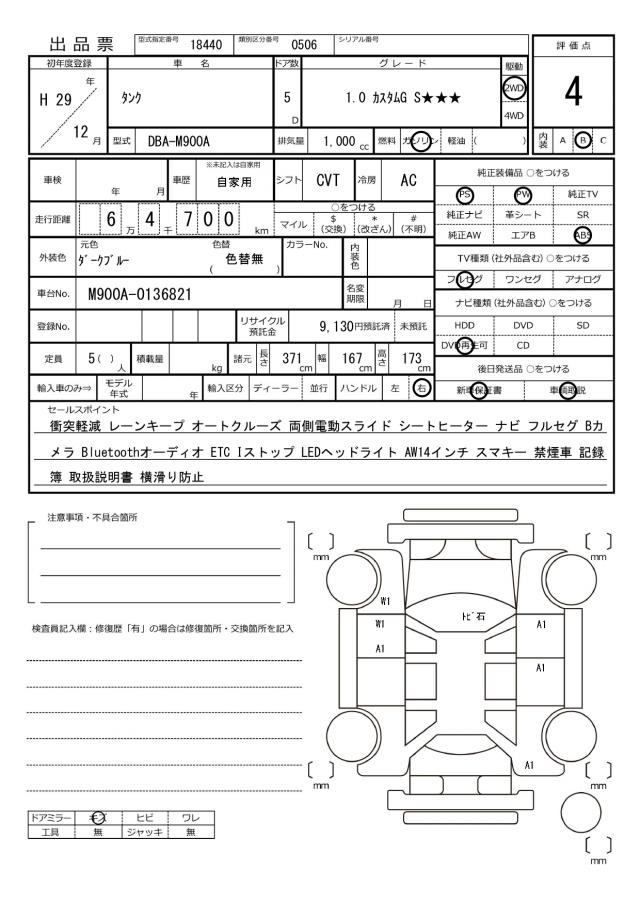 出品票 型式指定番号 18440 類別区分番号 0506 シリアル番号
評価点
4
初年度登録 車名 ドア数 グレード 駆動
H 29 年 12 月 タンク 5 D 1.0 カスタムG S★★★ 2WD 4WD
型式 DBA-M900A 排気量 1,000 cc 燃料 ガソリン 軽油 ( )
内装 A B C
車検 年 月 車歴 ※未記入は自家用 自家用 シフト CVT 冷房 AC
純正装備品 ○をつける
PS PW 純正TV
純正ナビ 革シート SR
純正AW エアB ABS
走行距離 6 万 4 千 7 0 0 km
○をつける
マイル $ (交換) * (改ざん) # (不明)
外装色 元色 ダークブルー 色替 ( 色替無 ) カラーNo. 内装色
TV種類 (社外品含む) ○をつける
フルセグ ワンセグ アナログ
車台No. M900A-0136821 名変期限 月 日
ナビ種類 (社外品含む) ○をつける
HDD DVD SD
DVD再生可 CD
登録No. リサイクル預託金 9,130円預託済 未預託
定員 5 ( ) 人 積載量 kg 諸元 長さ 371 cm 幅 167 cm 高さ 173 cm
後日発送品 ○をつける
新車保証書 車輌取説
輸入車のみ⇒ モデル年式 年 輸入区分 ディーラー 並行 ハンドル 左 右
セールスポイント
衝突軽減 レーンキープ オートクルーズ 両側電動スライド シートヒーター ナビ フルセグ Bカ
メラ Bluetoothオーディオ ETC Iストップ LEDヘッドライト AW14インチ スマキー 禁煙車 記録
簿 取扱説明書 横滑り防止
注意事項・不具合箇所
検査員記入欄：修復歴「有」の場合は修復箇所・交換箇所を記入
〔 〕 mm
〔 〕 mm
W1
トビ石
W1
A1
A1
A1
A1
〔 〕 mm
〔 〕 mm
〔 〕 mm
ドアミラー キズ ヒビ ワレ
工具 無 ジャッキ 無